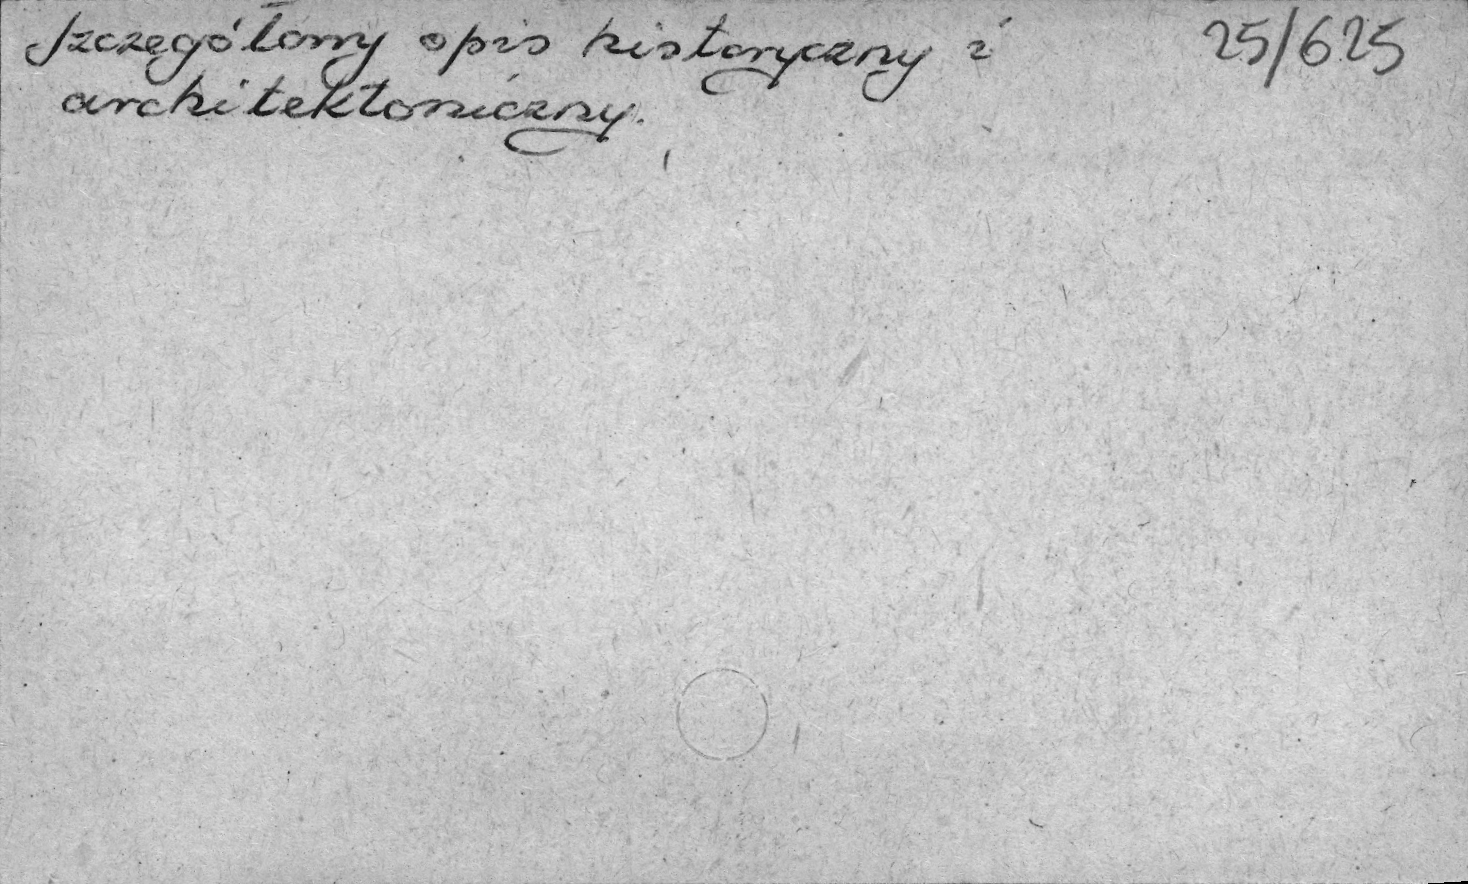 Szczegółowy opis historyczny i 25/625
architektoniczny.